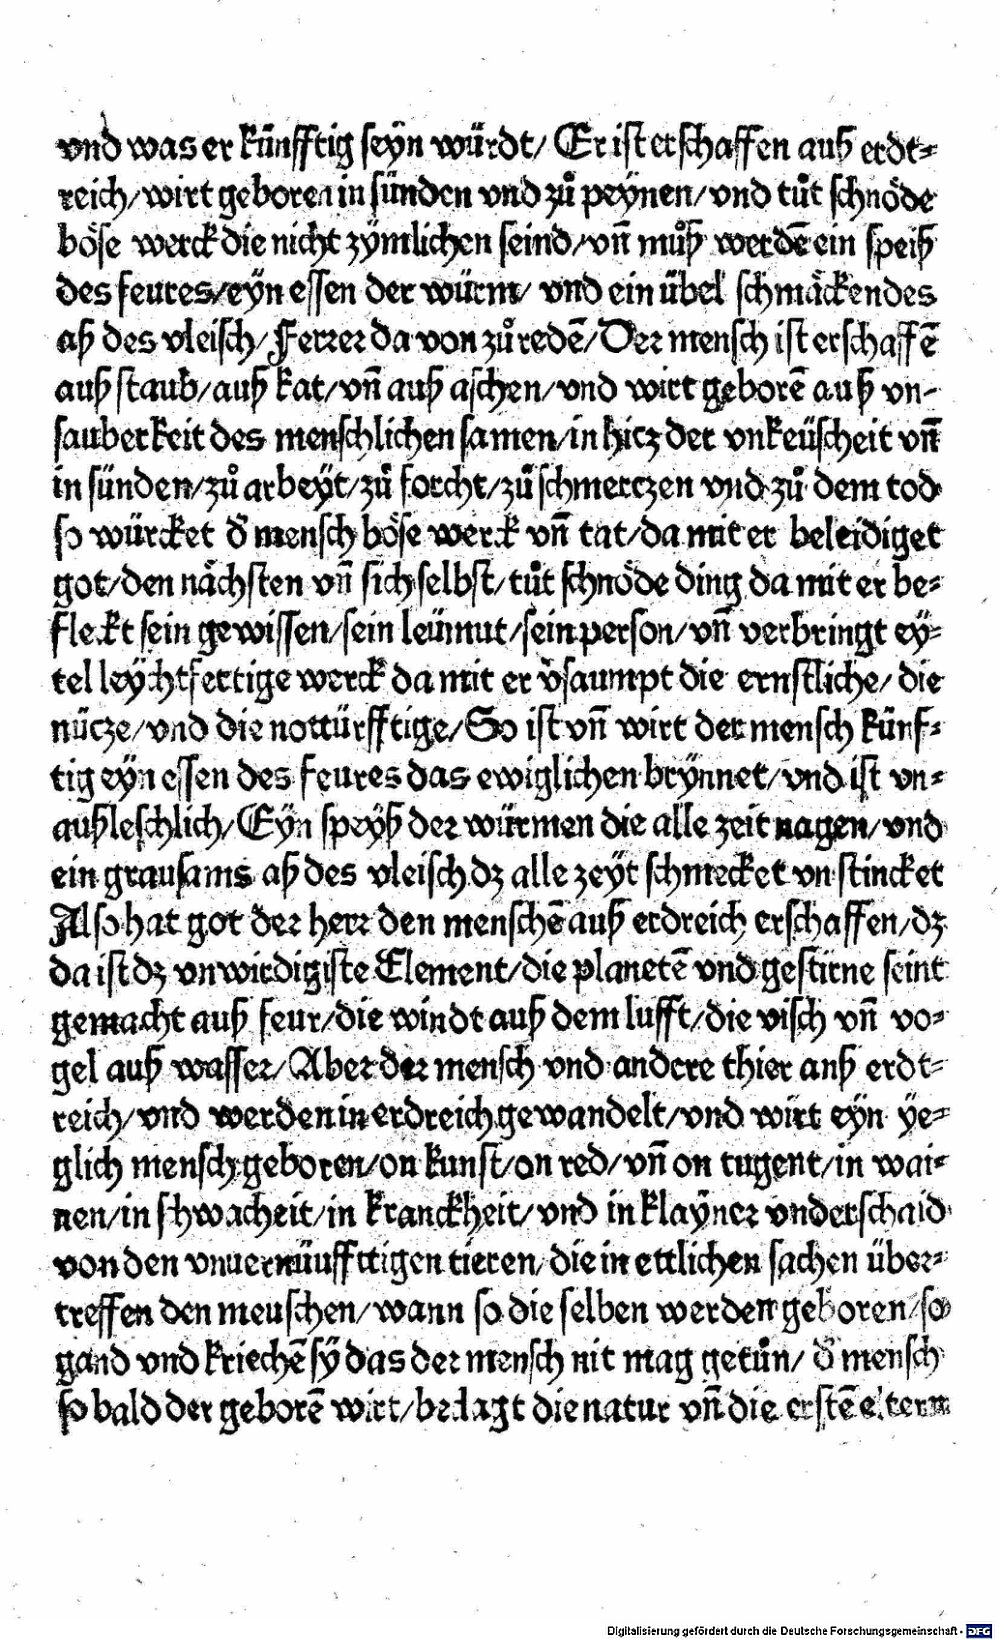 vnd was er künfftig seÿn würdt/ Er ist erschaffen auß erdt⸗
reich/wirt geboren in sünden vnd zů peÿnen/vnd tůt schnöde
böse werck die nicht zÿmlichen seind/vn̄ můß werdē ein speiß
des feures/eÿn essen der würm/ vnd ein übel schmäckendes
aß des vleisch/Ferrer da von zů redē/Der mensch ist erschaffē
auß staub/auß kat/vn̄ auß aschen/vnd wirt geborē auß vn⸗
sauberkeit des menschlichen samen/in hicz der vnkeüscheit vn̄
in sünden/zů arbeÿt/zů forcht/zů schmerczen vnd zů dem tod
so würcket d̕ mensch böse werck vn̄ tat/da mit er beleidiget
got/den nächsten vn̄ sich selbst/tůt schnöde ding da mit er be⸗
fleckt sein gewissen/sein leümut/sein person/vn̄ verbringt ey⸗
tel leÿchtfertige werck da mit er v̕saumpt die ernstliche/die
nücze/vnd die nottürfftige/So ist vn̄ wirt der mensch künf⸗
tig eÿn essen des feures das ewiglichen brÿnnet/vnd ist vn⸗
außleschlich/Eÿn speÿß der würmen die alle zeit nagen/vnd
ein grausams aß des vleisch dz alle zeÿt schmecket vn stincket
Also hat got der herr den menschē auß erdreich erschaffen/dz
da ist dz vnwirdigiste Element/die planetē vnd gestirne seint
gemacht auß feur/die windt auß dem lufft/die visch vn̄ vo⸗
gel auß wasser/Aber der mensch vnd andere thier anß erdt⸗
reich/vnd werden in erdreich gewandelt/vnd wirt eÿn ÿe⸗
glich mensch geboren/on kunst/on red/vn̄ on tugent/in wai⸗
nen/in schwacheit/in kranckheit/vnd in klaÿner vnderschaid
von den vnuernüufftigen tieren/die in ettlichen sachen über⸗
treffen den meuschen/wann so die selben werden geboren/so
gand vnd kriechē sÿ das der mensch nit mag getůn/ d̕ mensch
so bald der geborē wirt/beclagt die natur vn̄ die erstē eltern
Digitalisierung gefördert durch die Deutsche Forschungsgemeinschaft - DFG